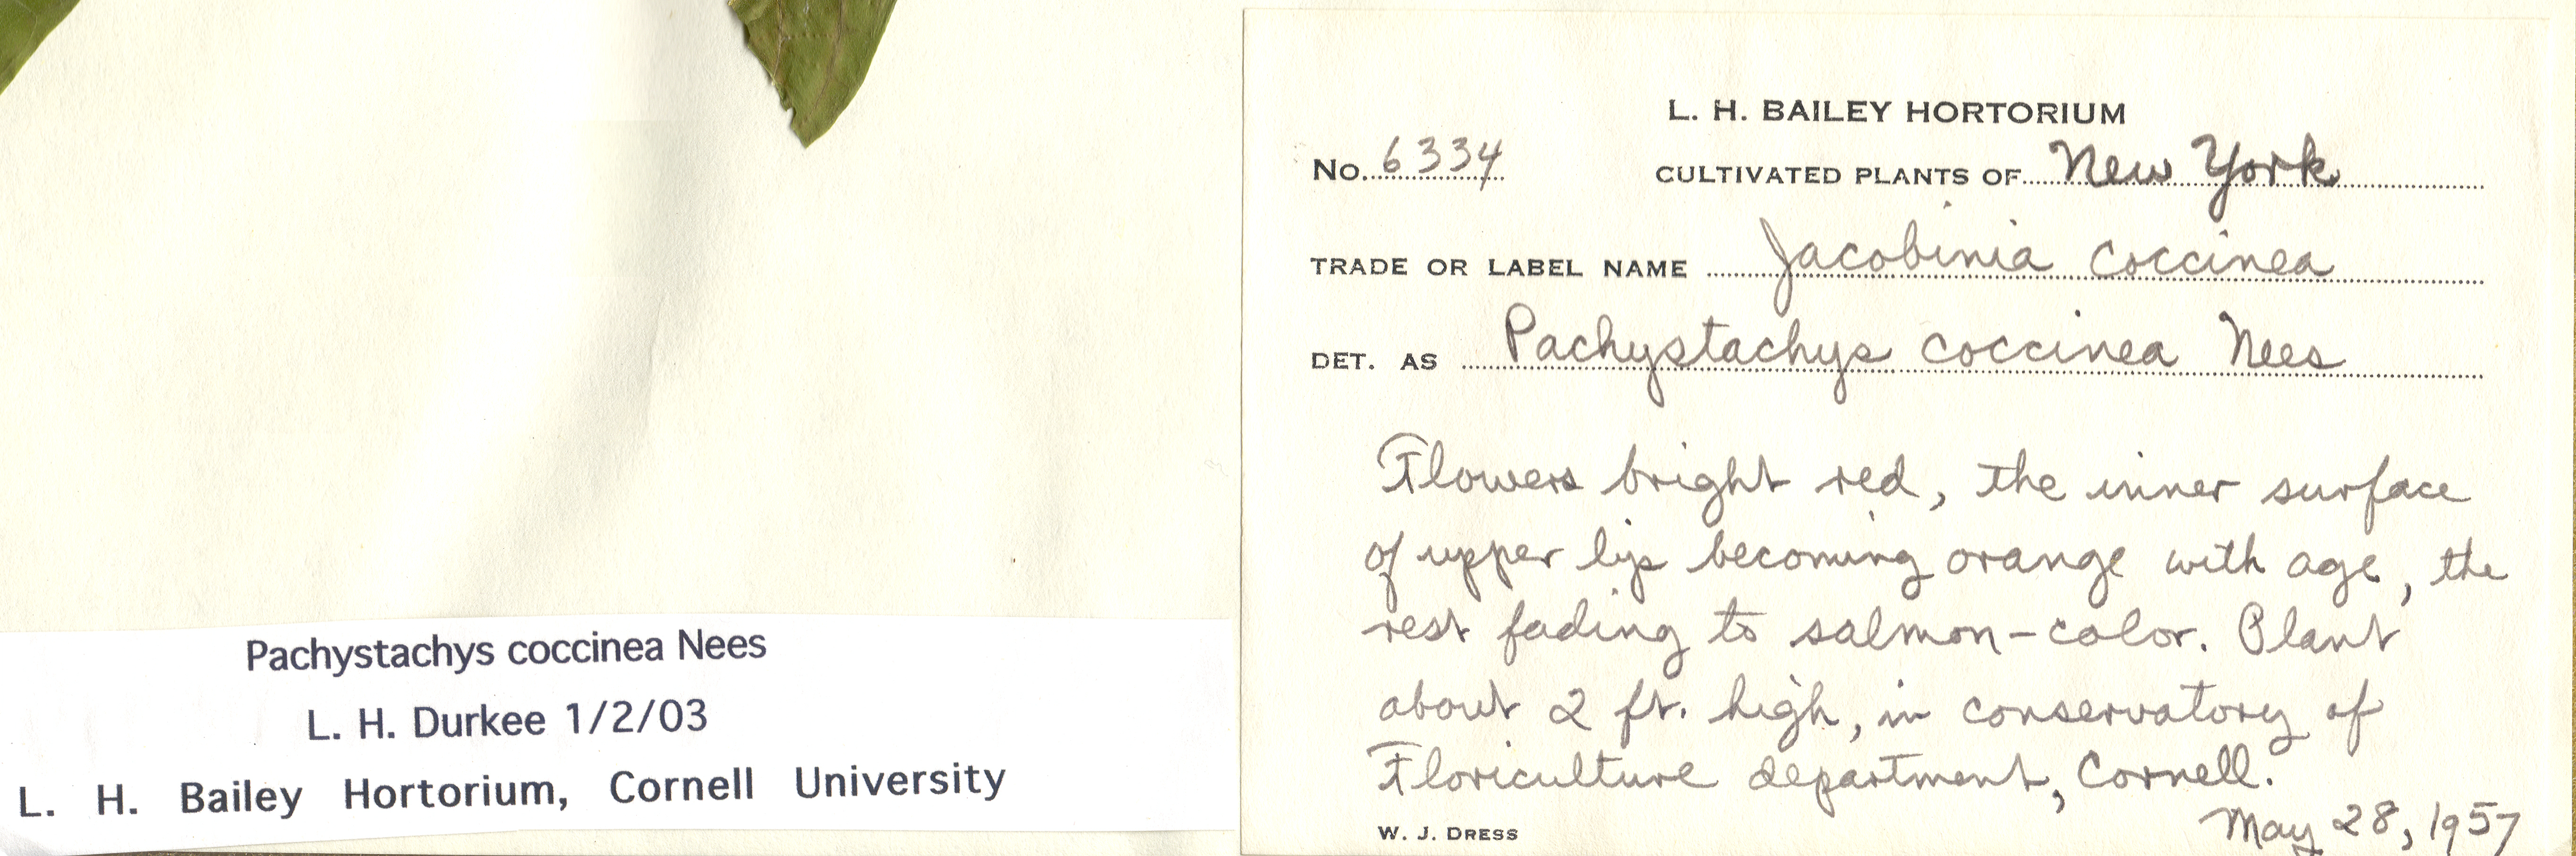 Pachystachys coccinea Nees
L. H. Durkee 1/2/03
L. H. Bailey Hortorium, Cornell University
L. H. BAILEY HORTORIUM
No. 6334 CULTIVATED PLANTS OF New York
TRADE OR LABEL NAME Jacobinia coccinea
DET. AS Pachystachys coccinea Nees
Flowers bright red, the inner surface
of upper lip becoming orange with age, the
rest fading to salmon-color. Plant
about 2 ft. high, in conservatory of
Floriculture department, Cornell.
W. J. DRESS May 28, 1957